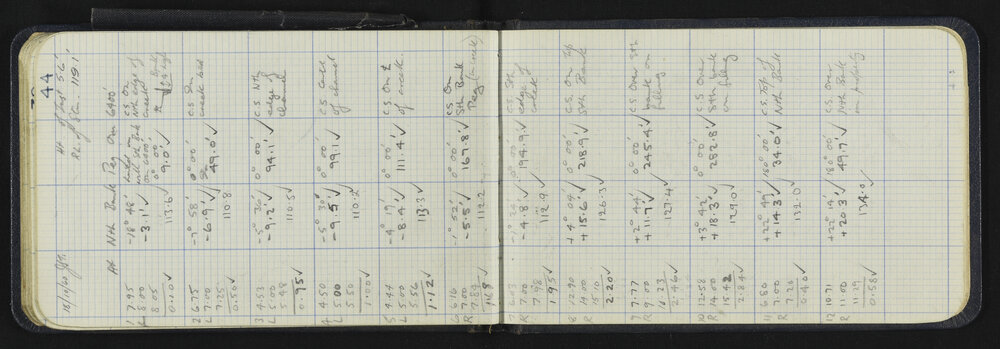 44
15/11/60 Ht of Inst 5.6'
R.L. of Stn. 119.1'
At Nth Bank Peg On 6400'
1 7.95 -18° 48' C.S. On
8.00 -3.1' ✓ Nth edge of
8.05 0° 00' creek
0.10 ✓ 113.6 ✓ 9.0' ✓
2 6.75 -7° 58' 0° 00' C.S. On
L 7.00 -6.9' ✓ 49.0' ✓ creek bed
7.25
0.50 ✓ 110.8
3 4.53 -5° 30' 0° 00' C.S. Nth
L 5.00 -9.2' ✓ 94.1' ✓ edge of
5.48 channel
0.95 ✓ 110.5 ✓
4 4.50 -5° 30' 0° 00' C.S. Centre
L 5.00 -9.5' ✓ 99.1 of channel
5.50
1.00 ✓ 110.2
5 4.44 -4° 19' 0° 00' C.S. On ℄
L 5.00 -8.4' ✓ 111.4 ✓ of creek
5.56
1.12 ✓ 113.3 ✓
6 6.16 -1° 52' 0° 00' C.S. On
R 7.00 -5.5' ✓ 167.8' ✓ Sth Bank
7.84 Peg (in creek)
1.68 ✓ 112.2
7 6.03 -1° 24' 0° 00' C.S. Sth
R 7.00 -4.8' ✓ 194.9' ✓ edge of
7.98 creek
1.95 ✓ 112.9 ✓
8 12.90 +4° 09' 0° 00' C.S. On Top
R 14.00 +15.6' ✓ 218.9' ✓ Sth Bank
15.10
2.20 ✓ 126.3 ✓
9 7.77 +2° 44' 0° 00' C.S. Over Sth
R 9.00 +11.7' ✓ 245.4' ✓ bank on
10.23 filling
2.46 ✓ 127.4 ✓
10 12.58 +3° 42' 0° 00' C.S. Over
R 14.00 +18.3' ✓ 282.8' ✓ Sth bank
15.42 on filling
2.84 ✓ 129.0 ✓
11 6.80 +22° 49' 180° 00' C.S. Top of
R 7.00 +14.3' ✓ 34.0' ✓ Nth Bank
7.20
0.40 ✓ 132.0 ✓
12 10.71 +22° 14' 180° 00' C.S. On
R 11.00 +20.3' ✓ 49.7' ✓ Nth Bank
11.29
0.58 ✓ 134.0 ✓